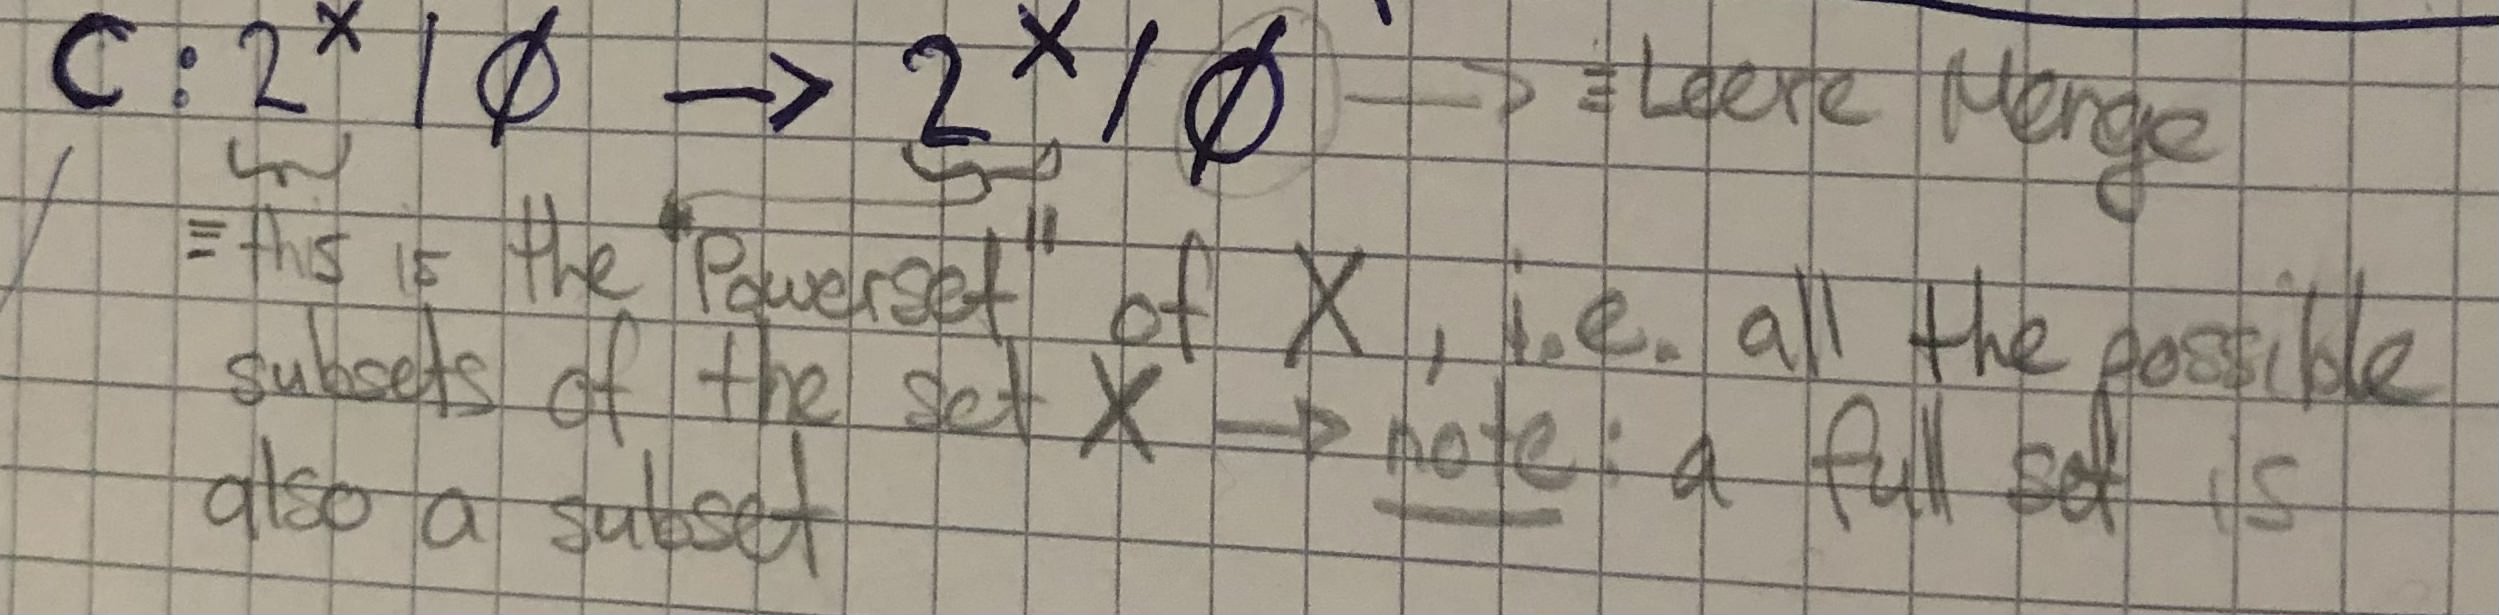 C : 2^X / ∅ → 2^X / ∅ → ≙ Leere Menge
≡ this is the "Powerset" of X, i.e. all the possible
subsets of the set X → note: a full set is
also a subset